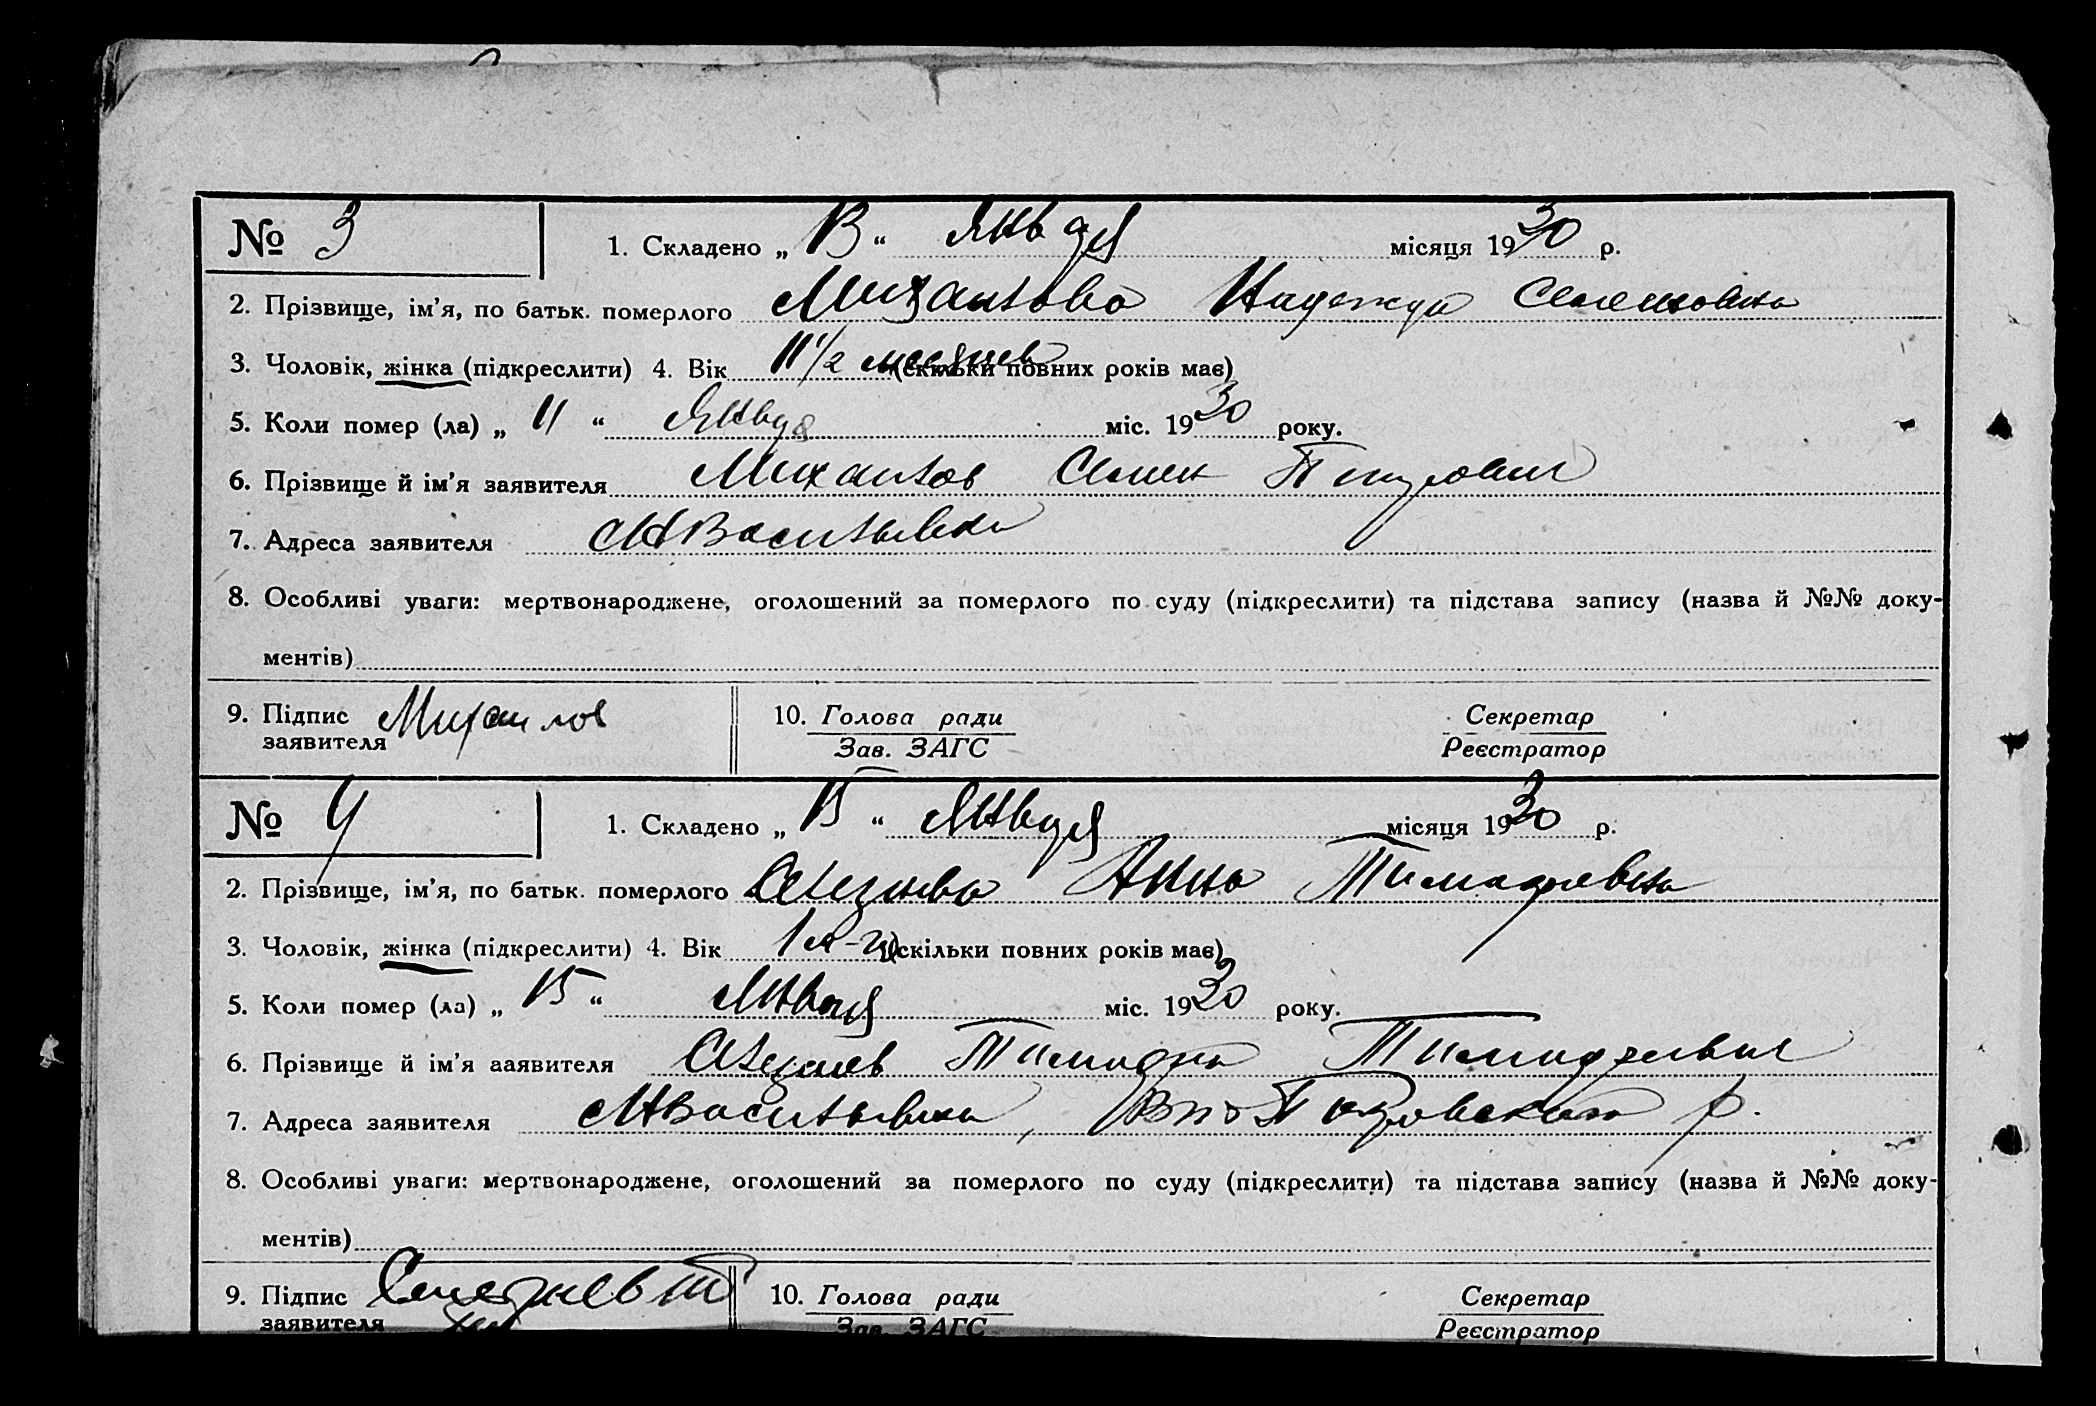 № 3 1. Складено „ 13 “ Января місяця 1930 р.
2. Прізвище, ім'я, по батьк. померлого Михайлова Надежда Семеновна
3. Чоловік, жінка (підкреслити) 4. Вік 11 1/2 месяцев (скільки повних років має)
5. Коли помер (ла) „ 11 “ Января міс. 1930 року.
6. Прізвище й ім'я заявителя Михайлов Семен
7. Адреса заявителя Васильевка
8. Особливі уваги: мертвонароджене, оголошений за померлого по суду (підкреслити) та підстава запису (назва й №№ доку-
ментів)
9. Підпис Михаилов 10. Голова ради Секретар
заявителя Зав. ЗАГС Реєстратор
№ 4 1. Складено „ 15 “ Января місяця 1930 р.
2. Прізвище, ім'я, по батьк. померлого Анна Тимофеевна
3. Чоловік, жінка (підкреслити) 4. Вік (скільки повних років має)
5. Коли помер (ла) „ 15 “ Января міс. 1930 року.
6. Прізвище й ім'я заявителя Тимофей Тимофеевич
7. Адреса заявителя Васильевка, р.
8. Особливі уваги: мертвонароджене, оголошений за померлого по суду (підкреслити) та підстава запису (назва й №№ доку-
ментів)
9. Підпис 10. Голова ради Секретар
заявителя Зав. ЗАГС Реєстратор